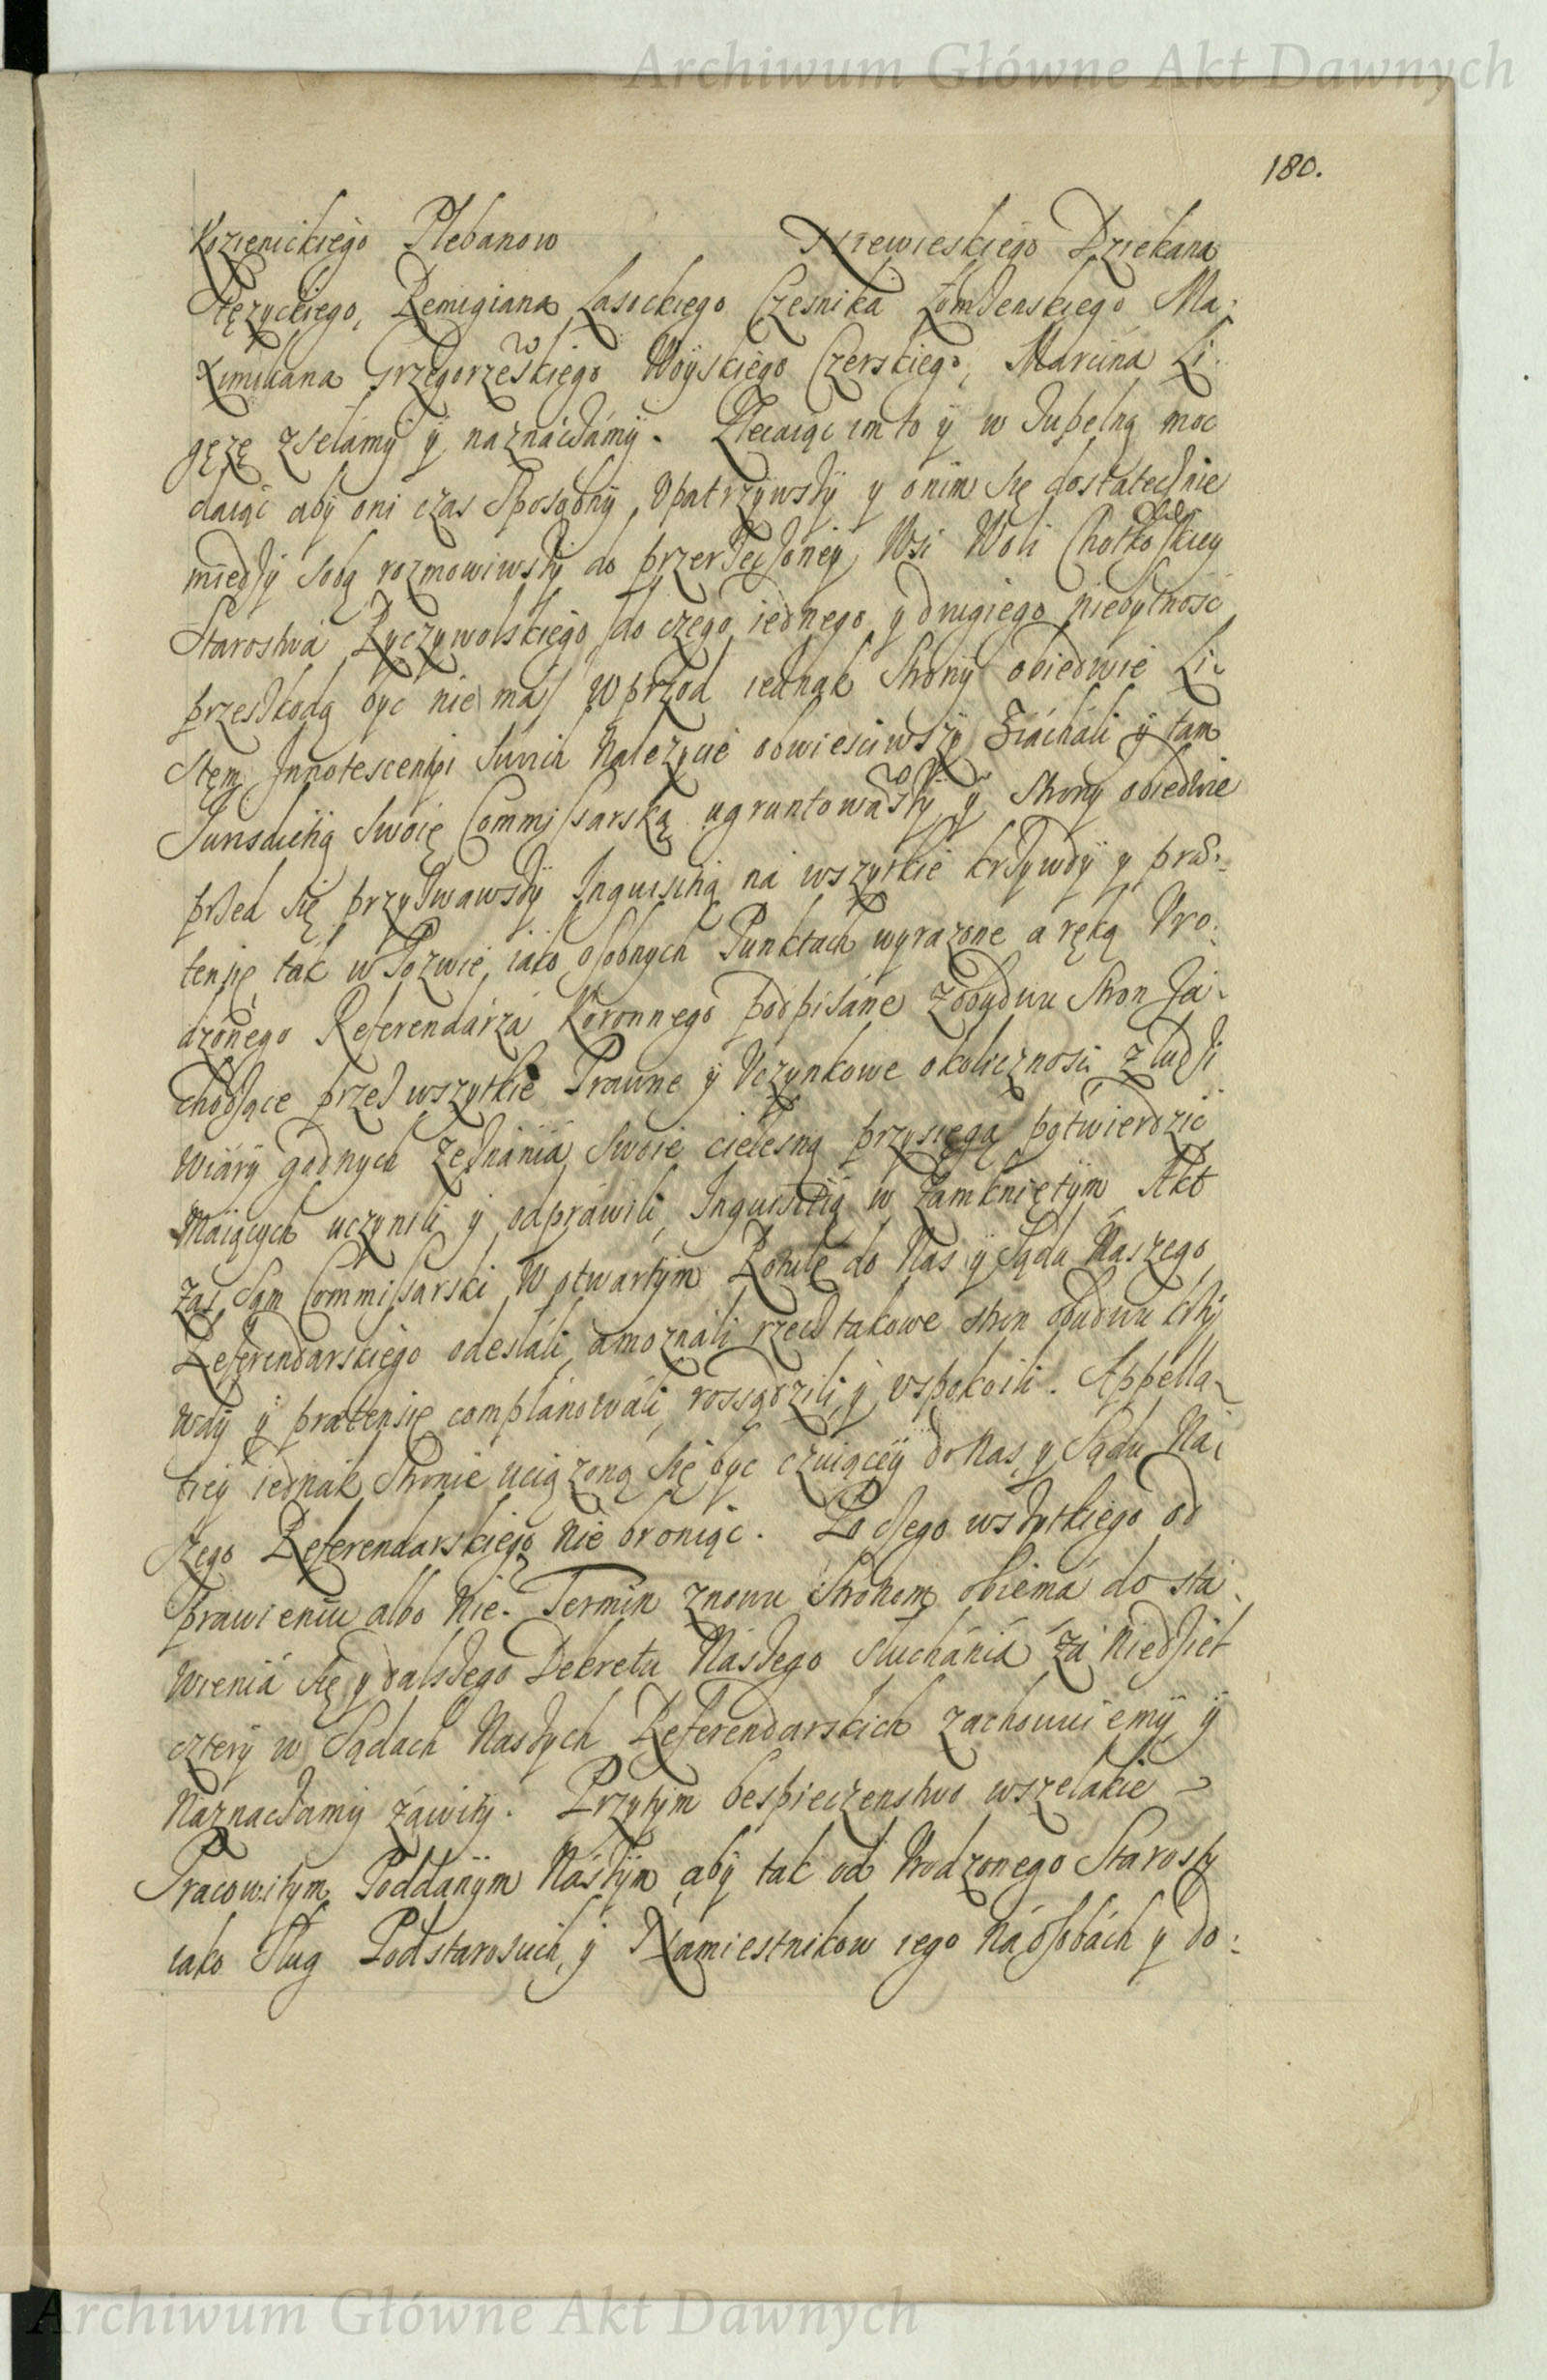 Archiwum Główne Akt Dawnych
180.
Kozienickiego Plebanow Niewieskiego Dziekana
Stęzyckiego, Remigiana Lasockiego Czesnika Łomżenskiego Ma:
ximiliana Grzegorzewskiego Woyskiego Czerskiego, Marcina Li-
gęzę zsełamy y naznaczamy. Zlecaiąc im to y w zupełną moc
daiąc aby oni czas sposobny upatrzywszy y o nim się dostatecznie
miedzy sobą rozmowiwszy do przerzeczoney Wsi Woli Chotkowskiey
Starostwa Ryczywolskiego /do czego iednego y drugiego niebytnosc
przeszkodą byc nie ma/ wprzod iednak Strony obiedwie Li-
stem Innotescentyi Swych Nalezycie obwiesciwszy Ziachali y tam
Jurisdictią Swoię Commissarską ugruntowawszy y Strony obiedwie
przed się przyzwawszy Inquisitią na wszytkie krzywdy y præ:
tensię tak w Pozwie, iako osobnych Punktach wyrazone a ręką Uro:
dzonego Referendarza Koronnego podpisane z obydwu Stron Za-
chodzące przez wszytkie Prawne y Uczynkowe okolicznosci z ludzi
wiary godnych Zeznania Swoie cielesną przysięgą potwierdzic
Maiących uczynili y odprawili, Inquisitią w Zamknietym Akt
zas Sam Commissarski w otwartym Rotule do Nas y Sądu Naszego
Referendarskiego odesłali, a moznali rzecz takowe stron obudwu krzy
wdy y prætensię complanowali, rossądzili y uspokoili. Appella-
tiey iednak Stronie uciązoną się byc czuiącey do Nas y Sądu Na-
szego Referendarskiego nie broniąc. Po czego wszytkiego od
prawieniu albo nie. Termin znowu Stronom obiema do sta-
wienia się y dalszego Dekretu Naszego słuchania za niedziel
cztery w Sądach Naszych Referendarskich zachowuiemy y
Naznaczamy zawity. Przytym bespieczenstwo wszelakie
Pracowitym Poddanym Naszym aby tak od Urodzonego Starosty
iako Sług Podstaroscich y Namiestnikow iego na osobach y do:
Archiwum Główne Akt Dawnych